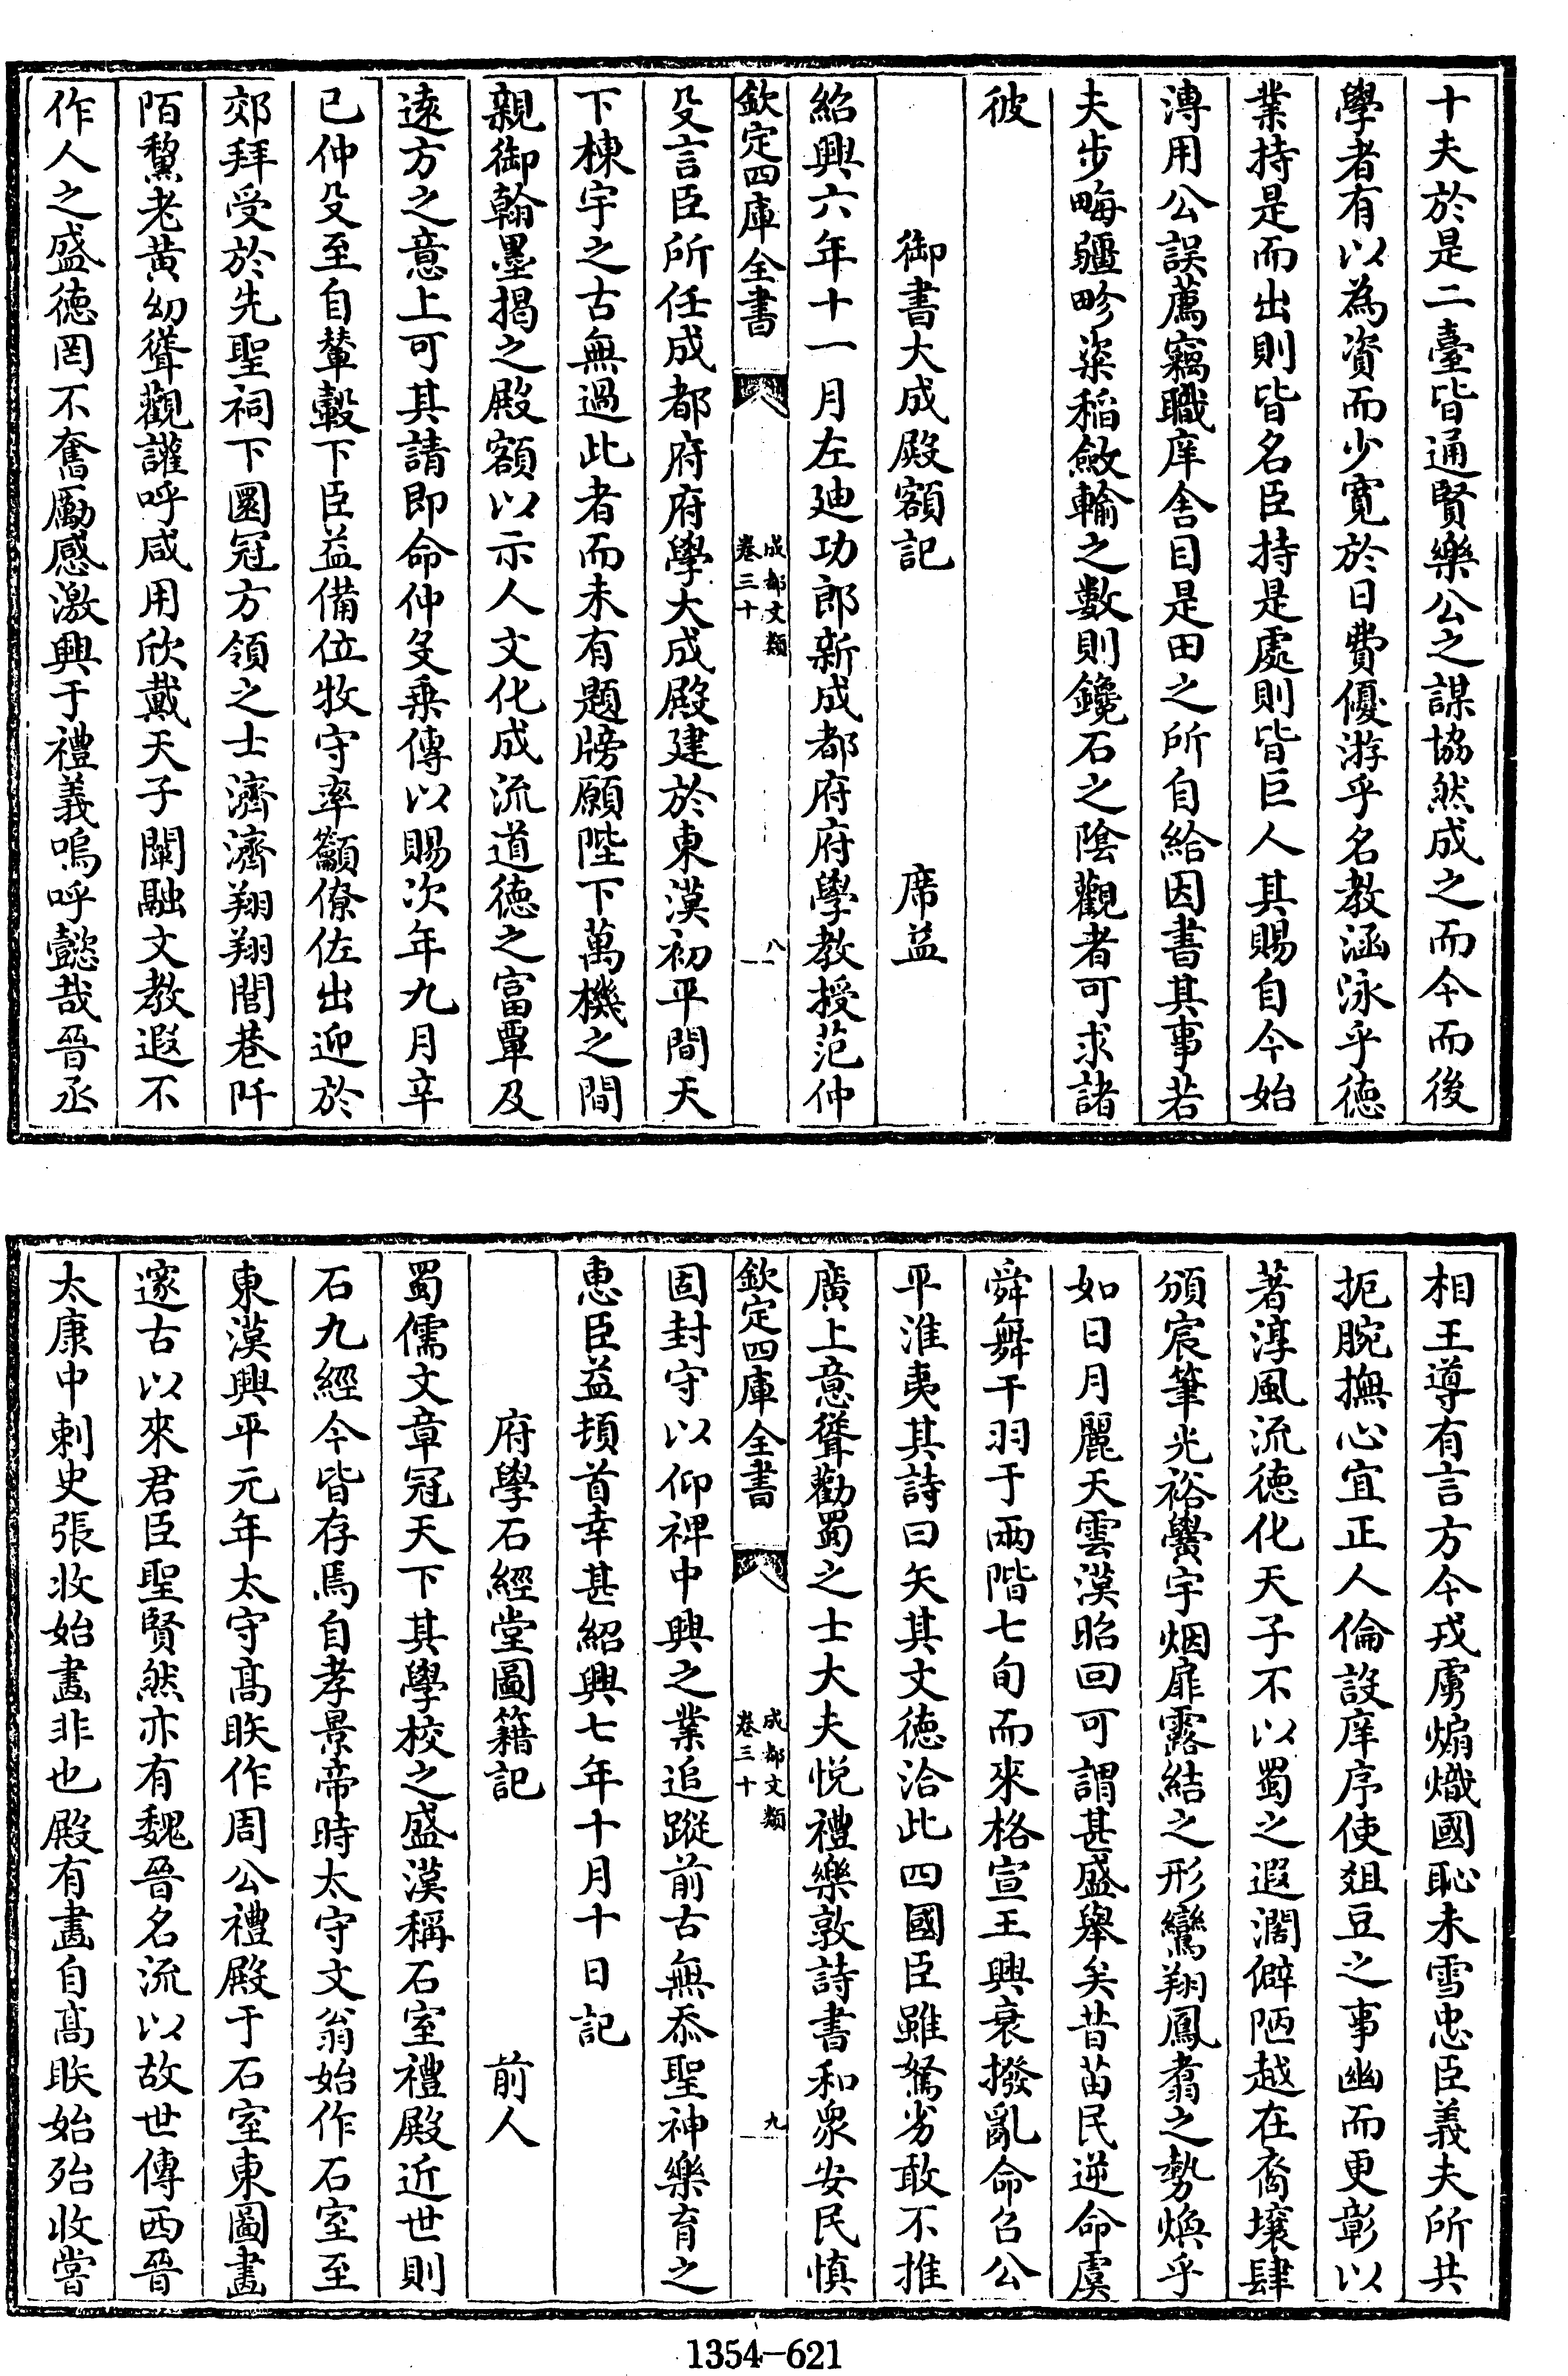 十夫於是二臺皆通賢樂公之謀協然成之而今而後
學者有以為資而少寛於日費優游乎名教涵泳乎徳
業持是而出則皆名臣持是處則皆巨人其賜自今始
溥用公誤薦竊職庠舍目是田之所自給因書其事若
夫步畮疆畛粢稻斂輸之數則鑱石之陰觀者可求諸
彼
御書大成殿額記 席益
紹興六年十一月左廸功郎新成都府府學教授范仲
欽定四庫全書 成都文類 卷三十 八
殳言臣所任成都府府學大成殿建於東漢初平間天
下棟宇之古無過此者而未有題牓願陛下萬機之間
親御翰墨揭之殿額以示人文化成流道徳之富覃及
逺方之意上可其請即命仲殳乗傳以賜次年九月辛
已仲殳至自輦轂下臣益備位牧守率籲僚佐出迎於
郊拜受於先聖祠下圜冠方領之士濟濟翔翔閭巷阡
陌黧老黄幼聳觀讙呼咸用欣戴天子闡融文教遐不
作人之盛徳罔不奮勵感激興于禮義嗚呼懿哉晉丞
相王導有言方今戎虜煽熾國恥未雪忠臣義夫所共
扼腕撫心宜正人倫設庠序使爼豆之事幽而更彰以
著淳風流徳化天子不以蜀之遐濶僻陋越在裔壤肆
頒宸筆光裕黌宇烟扉露結之形鸞翔鳳翥之勢煥乎
如日月麗天雲漢昭回可謂甚盛舉矣昔苗民逆命虞
舜舞干羽于兩階七旬而來格宣王興衰撥亂命召公
平淮夷其詩曰矢其文徳洽此四國臣雖駑劣敢不推
廣上意聳勸蜀之士大夫悦禮樂敦詩書和衆安民慎
欽定四庫全書 成都文類 卷三十 九
固封守以仰禆中興之業追蹤前古無忝聖神樂育之
恵臣益頓首幸甚紹興七年十月十日記
府學石經堂圖籍記 前人
蜀儒文章冠天下其學校之盛漢稱石室禮殿近世則
石九經今皆存焉自孝景帝時太守文翁始作石室至
東漢興平元年太守髙䀢作周公禮殿于石室東圖畫
邃古以來君臣聖賢然亦有魏晉名流以故世傳西晉
太康中刺史張收始畫非也殿有畫自髙䀢始殆收嘗
1354-621